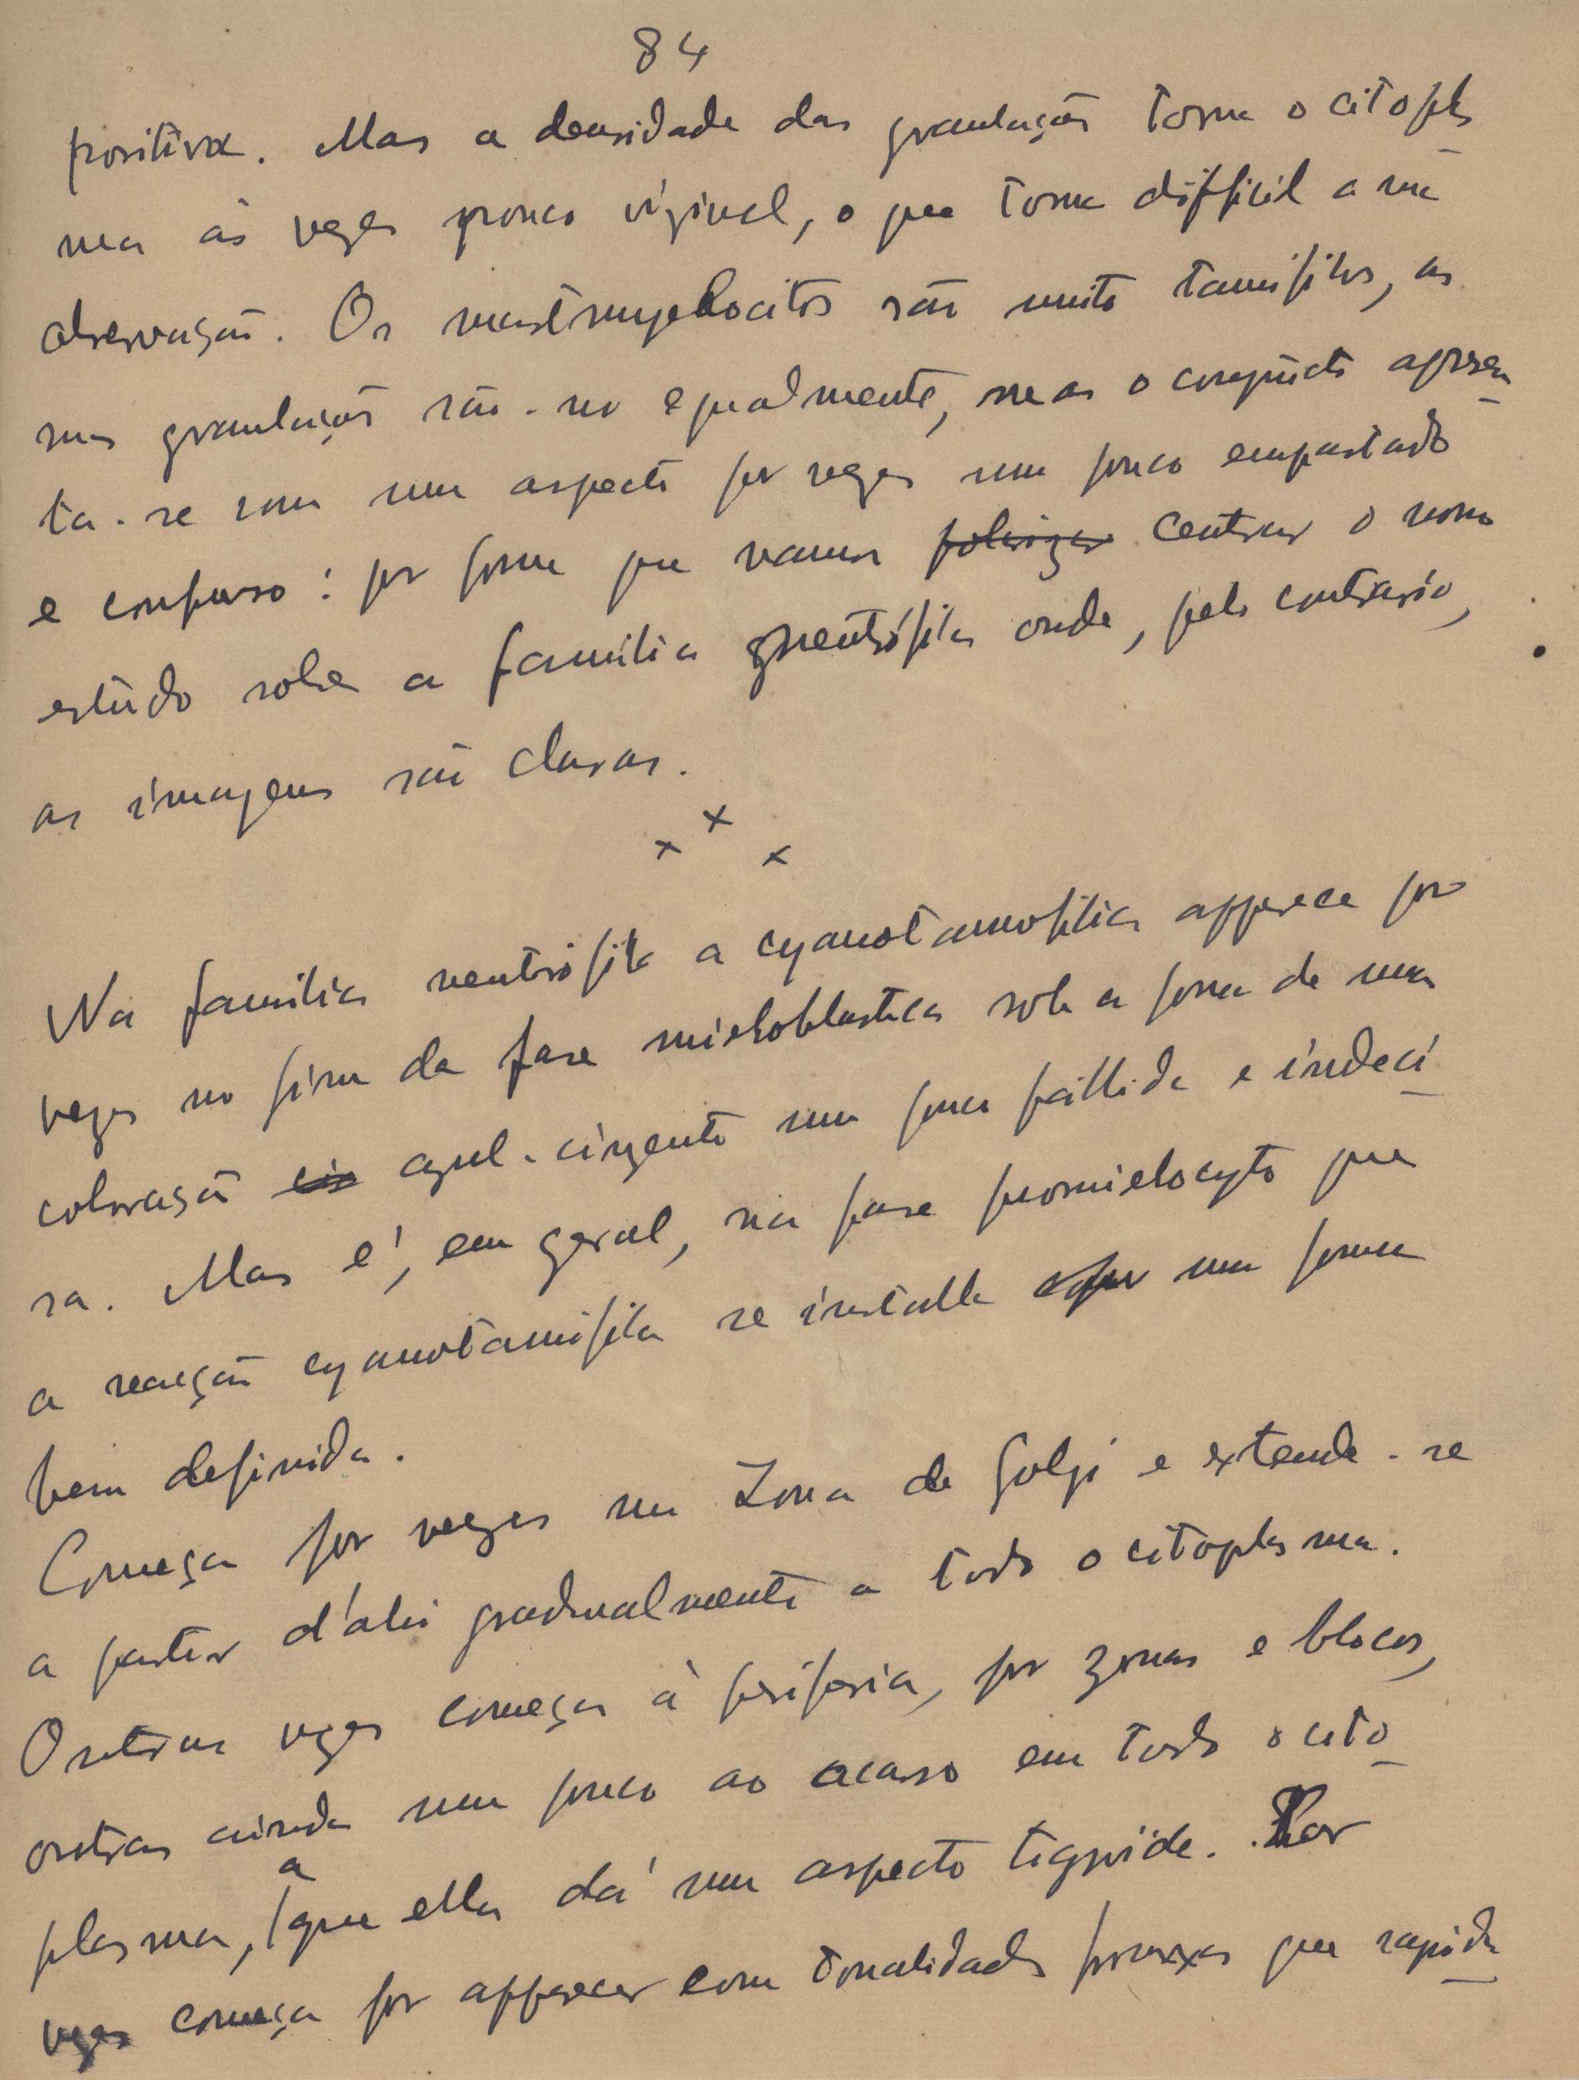 84
positiva. Mas a densidade das granulações torna o citoplas
ma ás vezes pouco vizivel, o que torna difficil a sua
observação. Os mastmyelocitos são muito tanofilos, as
suas granulações são-no egualmente, mas o conjuncto apresen-
ta-se com um aspecto por vezes um pouco empastado
e confuso: por forma que vamos polarizar centrar o nosso
estudo sobre a familia neutrófila onde, pelo contrario,
as imagens são claras.
x x x
Na familia neutrófila a cyanotannofilia apparece por
vezes no fim da fase mieloblastica sob a forma de uma
coloração cin azul-cinzento um pouco pallida e indeci-
sa. Mas é, em geral, na fase promielocyto que
a reacção cyanotanofila se installa uma forma
bem definida.
Começa por vezes na Zona de Golgi e extende-se
a partir d'ahi gradualmente a todo o citoplasma.
Outras vezes começa á periferia, por zonas e blocos,
outras ainda um pouco ao acaso em todo o cito-
plasma, a que ella dá um aspecto tigroide. Por
vezes começa por apparecer com tonalidades froux​as que rapida-